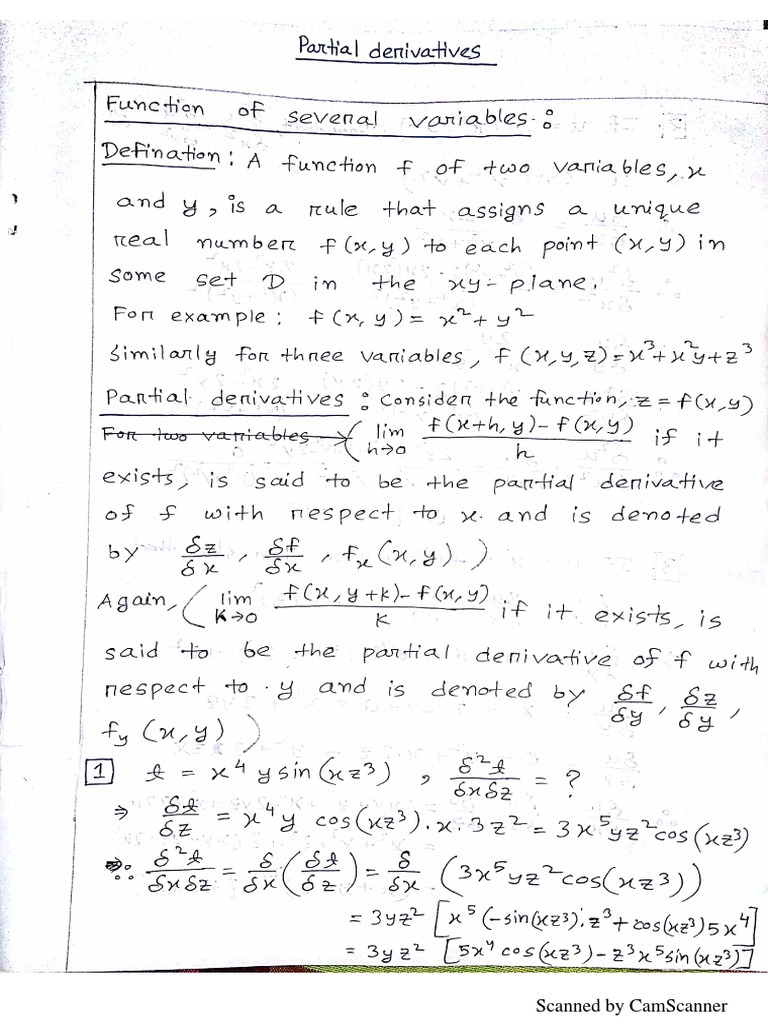 Partial derivatives
Function of several variables :
Defination : A function f of two variables, x
and y, is a rule that assigns a unique
real number f(x,y) to each point (x,y) in
some set D in the xy-plane.
For example : f(x,y) = x²+y²
Similarly for three variables, f(x,y,z)=x³+x²y+z³
Partial derivatives : Consider the function, z = f(x,y)
For two variables → ( lim h→0 f(x+h,y)-f(x,y) / h if it
exists, is said to be the partial derivative
of f with respect to x. and is denoted
by δz/δx, δf/δx, fₓ(x,y) )
Again, ( lim k→0 f(x,y+k)-f(x,y) / k if it exists, is
said to be the partial derivative of f with
respect to y and is denoted by δf/δy, δz/δy,
f_y (x,y) )
1 t = x⁴ y sin(xz³) , δ²t/δxδz = ?
⇒ δt/δz = x⁴y cos(xz³).x.3z² = 3x⁵yz²cos(xz³)
∴ δ²t/δxδz = δ/δx (δt/δz) = δ/δx (3x⁵yz²cos(xz³))
= 3yz² [x⁵(-sin(xz³).z³+cos(xz³)5x⁴]
= 3yz² [5x⁴cos(xz³)-z³x⁵sin(xz³)]
Scanned by CamScanner